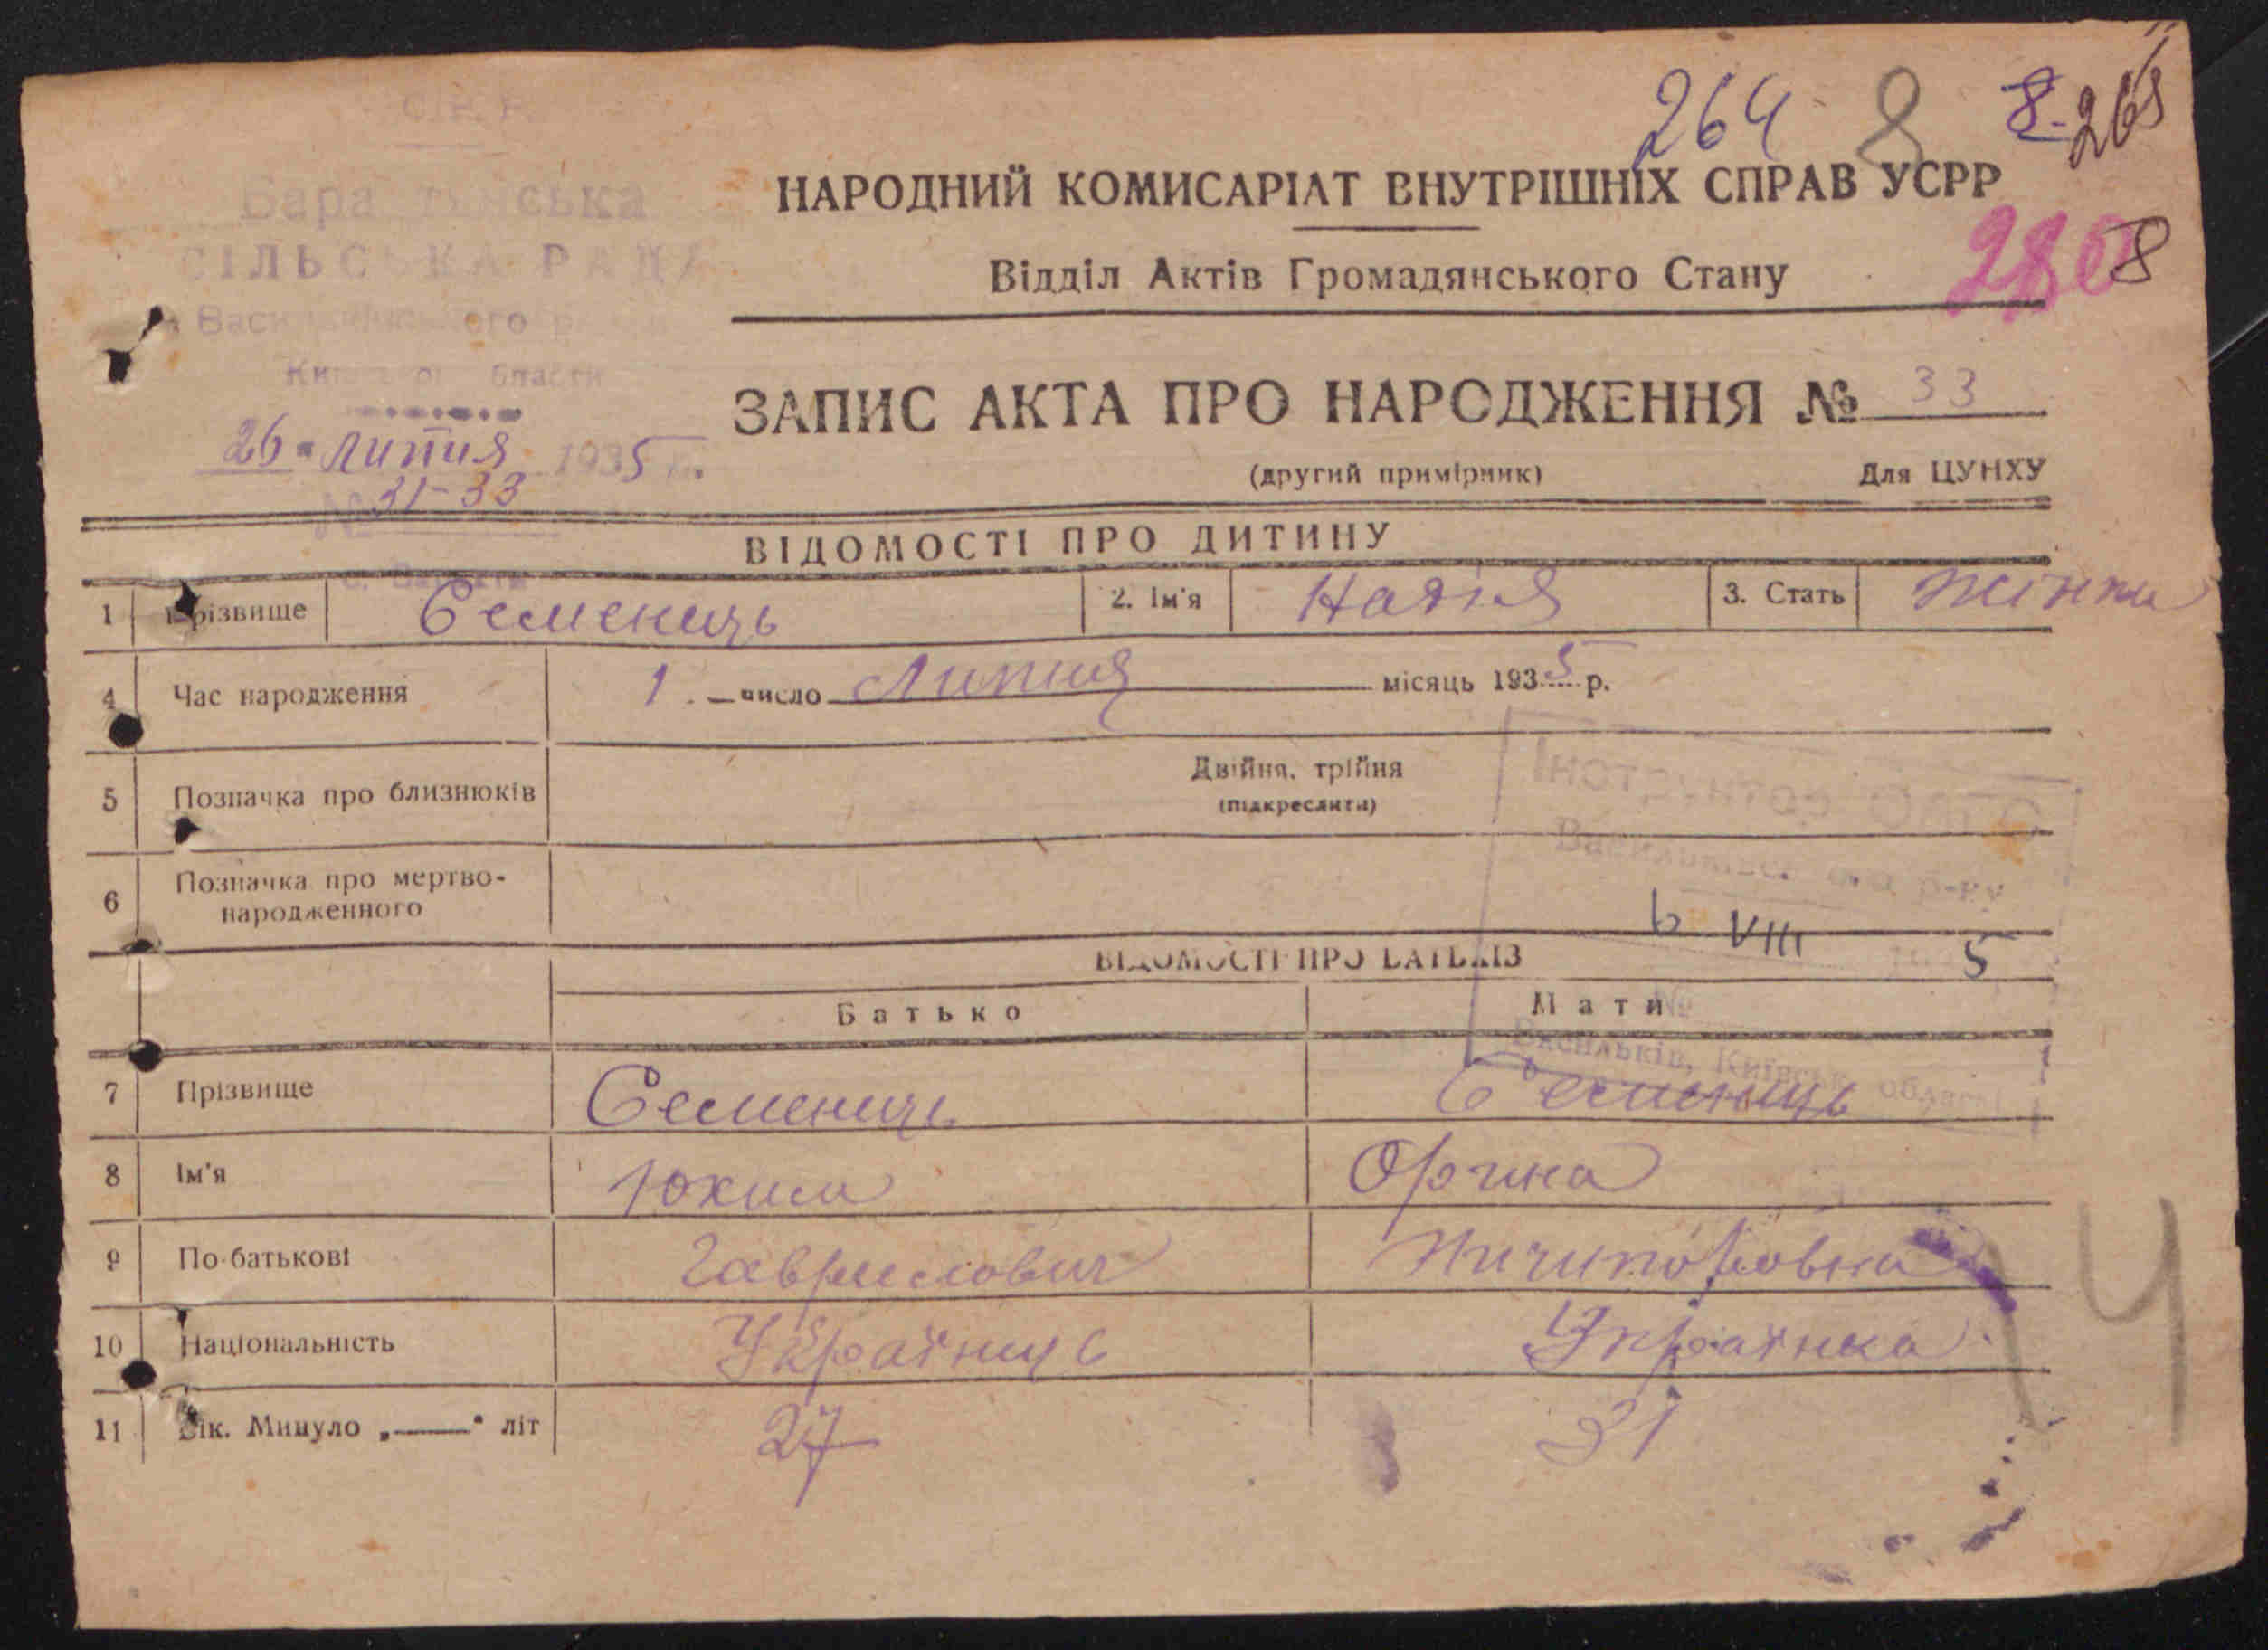 264 8 8-265
СІЛЬСЬКА РАДА
НАРОДНИЙ КОМИСАРІАТ ВНУТРІШНІХ СПРАВ УСРР
Відділ Актів Громадянського Стану
280 8
26 липня 1935 р.
№ 31-33
ЗАПИС АКТА ПРО НАРОДЖЕННЯ № 33
(другий примірник) Для ЦУНХУ
ВІДОМОСТІ ПРО ДИТИНУ
1 Прізвище Семениць 2. Ім'я Надія 3. Стать жінка
4 Час народження 1 число Липня місяць 1935 р.
5 Позначка про близнюків Двійня, трійня
(підкреслити)
6 Позначка про мертво-
народженного
6 VIII 5
ВІДОМОСТІ ПРО БАТЬКІВ
Батько Мати
Васильків, Київськ. області
7 Прізвище Семениць Семениць
8 Ім'я Юхим Орина
9 По-батькові Гаврилович Ничипоровна
10 Національність Українць Українка
11 Вік. Минуло „ " літ 27 31
4